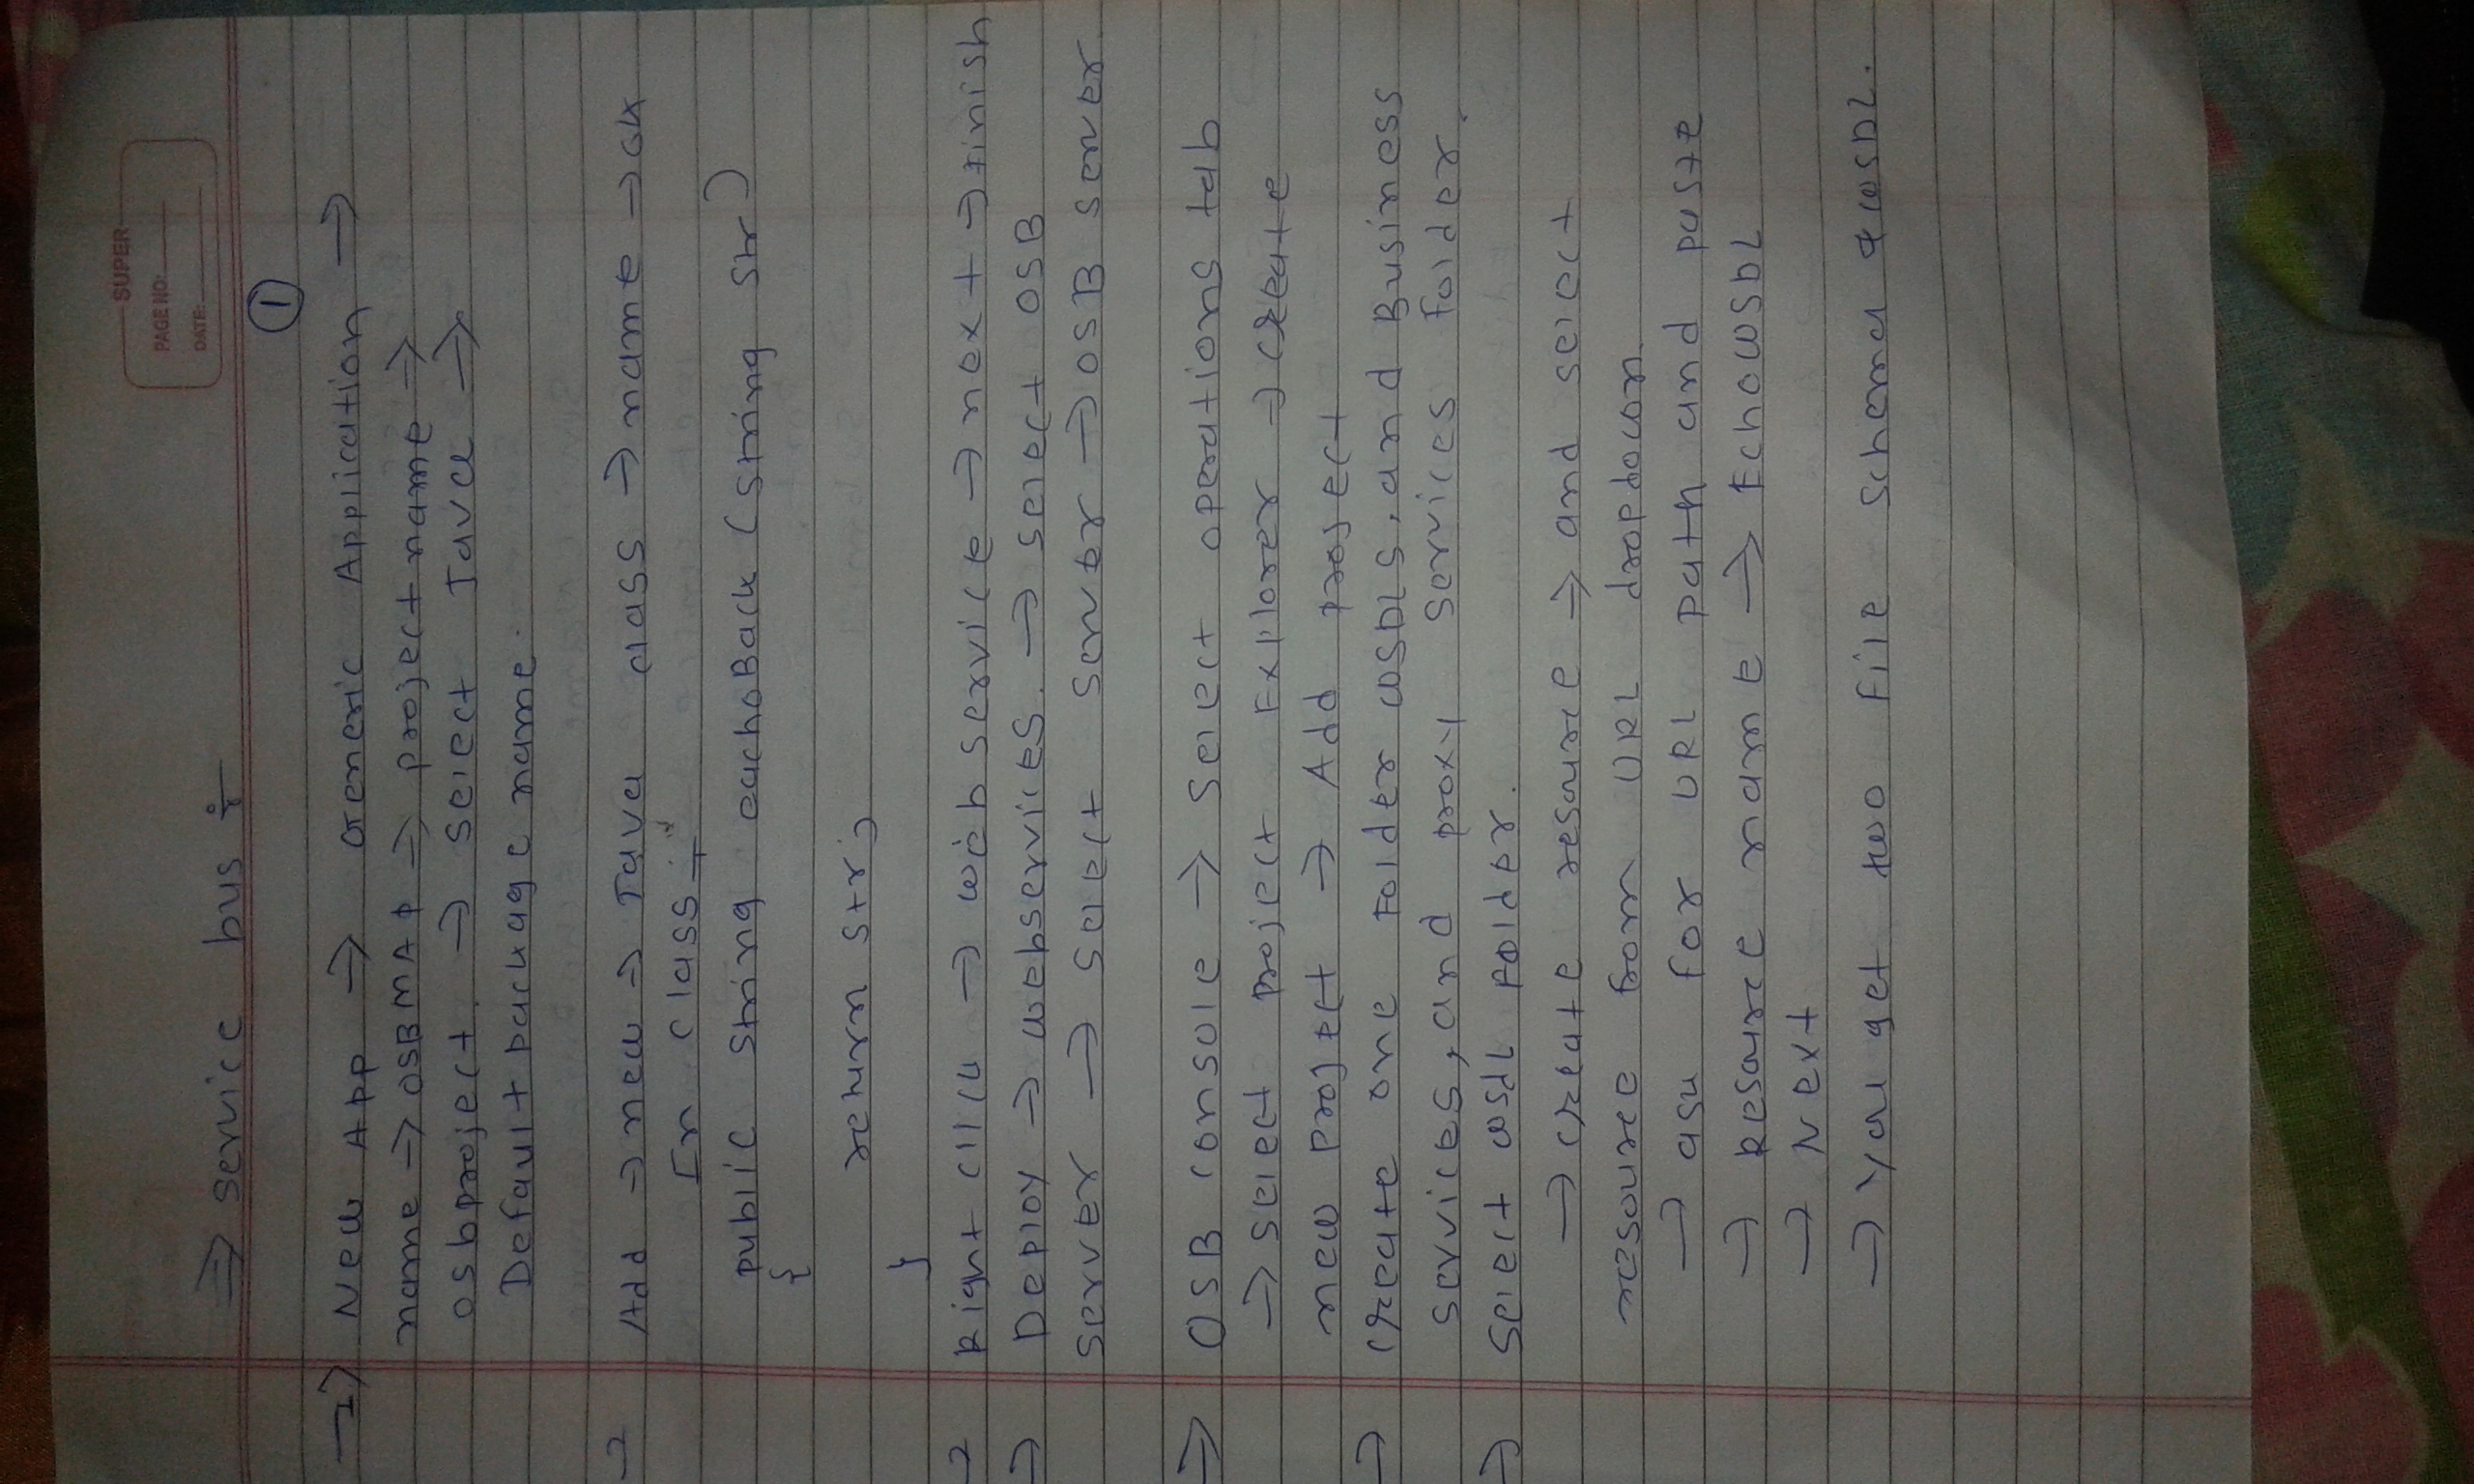 SUPER
PAGE NO:
DATE:
⇒ Service bus :-
①
→ New App ⇒ Generic Application →
name → OSBMAP ⇒ project name ⇒
osbproject. → select Java ⇒
Default package name.
→ Add → new ⇒ Java class → name → ok
In class :-
public string eachoBack (string str)
{
return str;
}
→ Right click → web service → next → finish
→ Deploy → webservices. → select OSB
server → select server → OSB server
⇒ OSB console → select operations tab
→ select project Explorer → create
new project → Add project
→ create one Folder WSDLS, and Business
services, and proxy services Folder.
→ select wsdl Folder.
→ create resource ⇒ and select
resource from URL dropdown.
→ ask for URL path and paste
→ Resource name → EchoWSDL
→ Next
→ You get two file schema & WSDL.